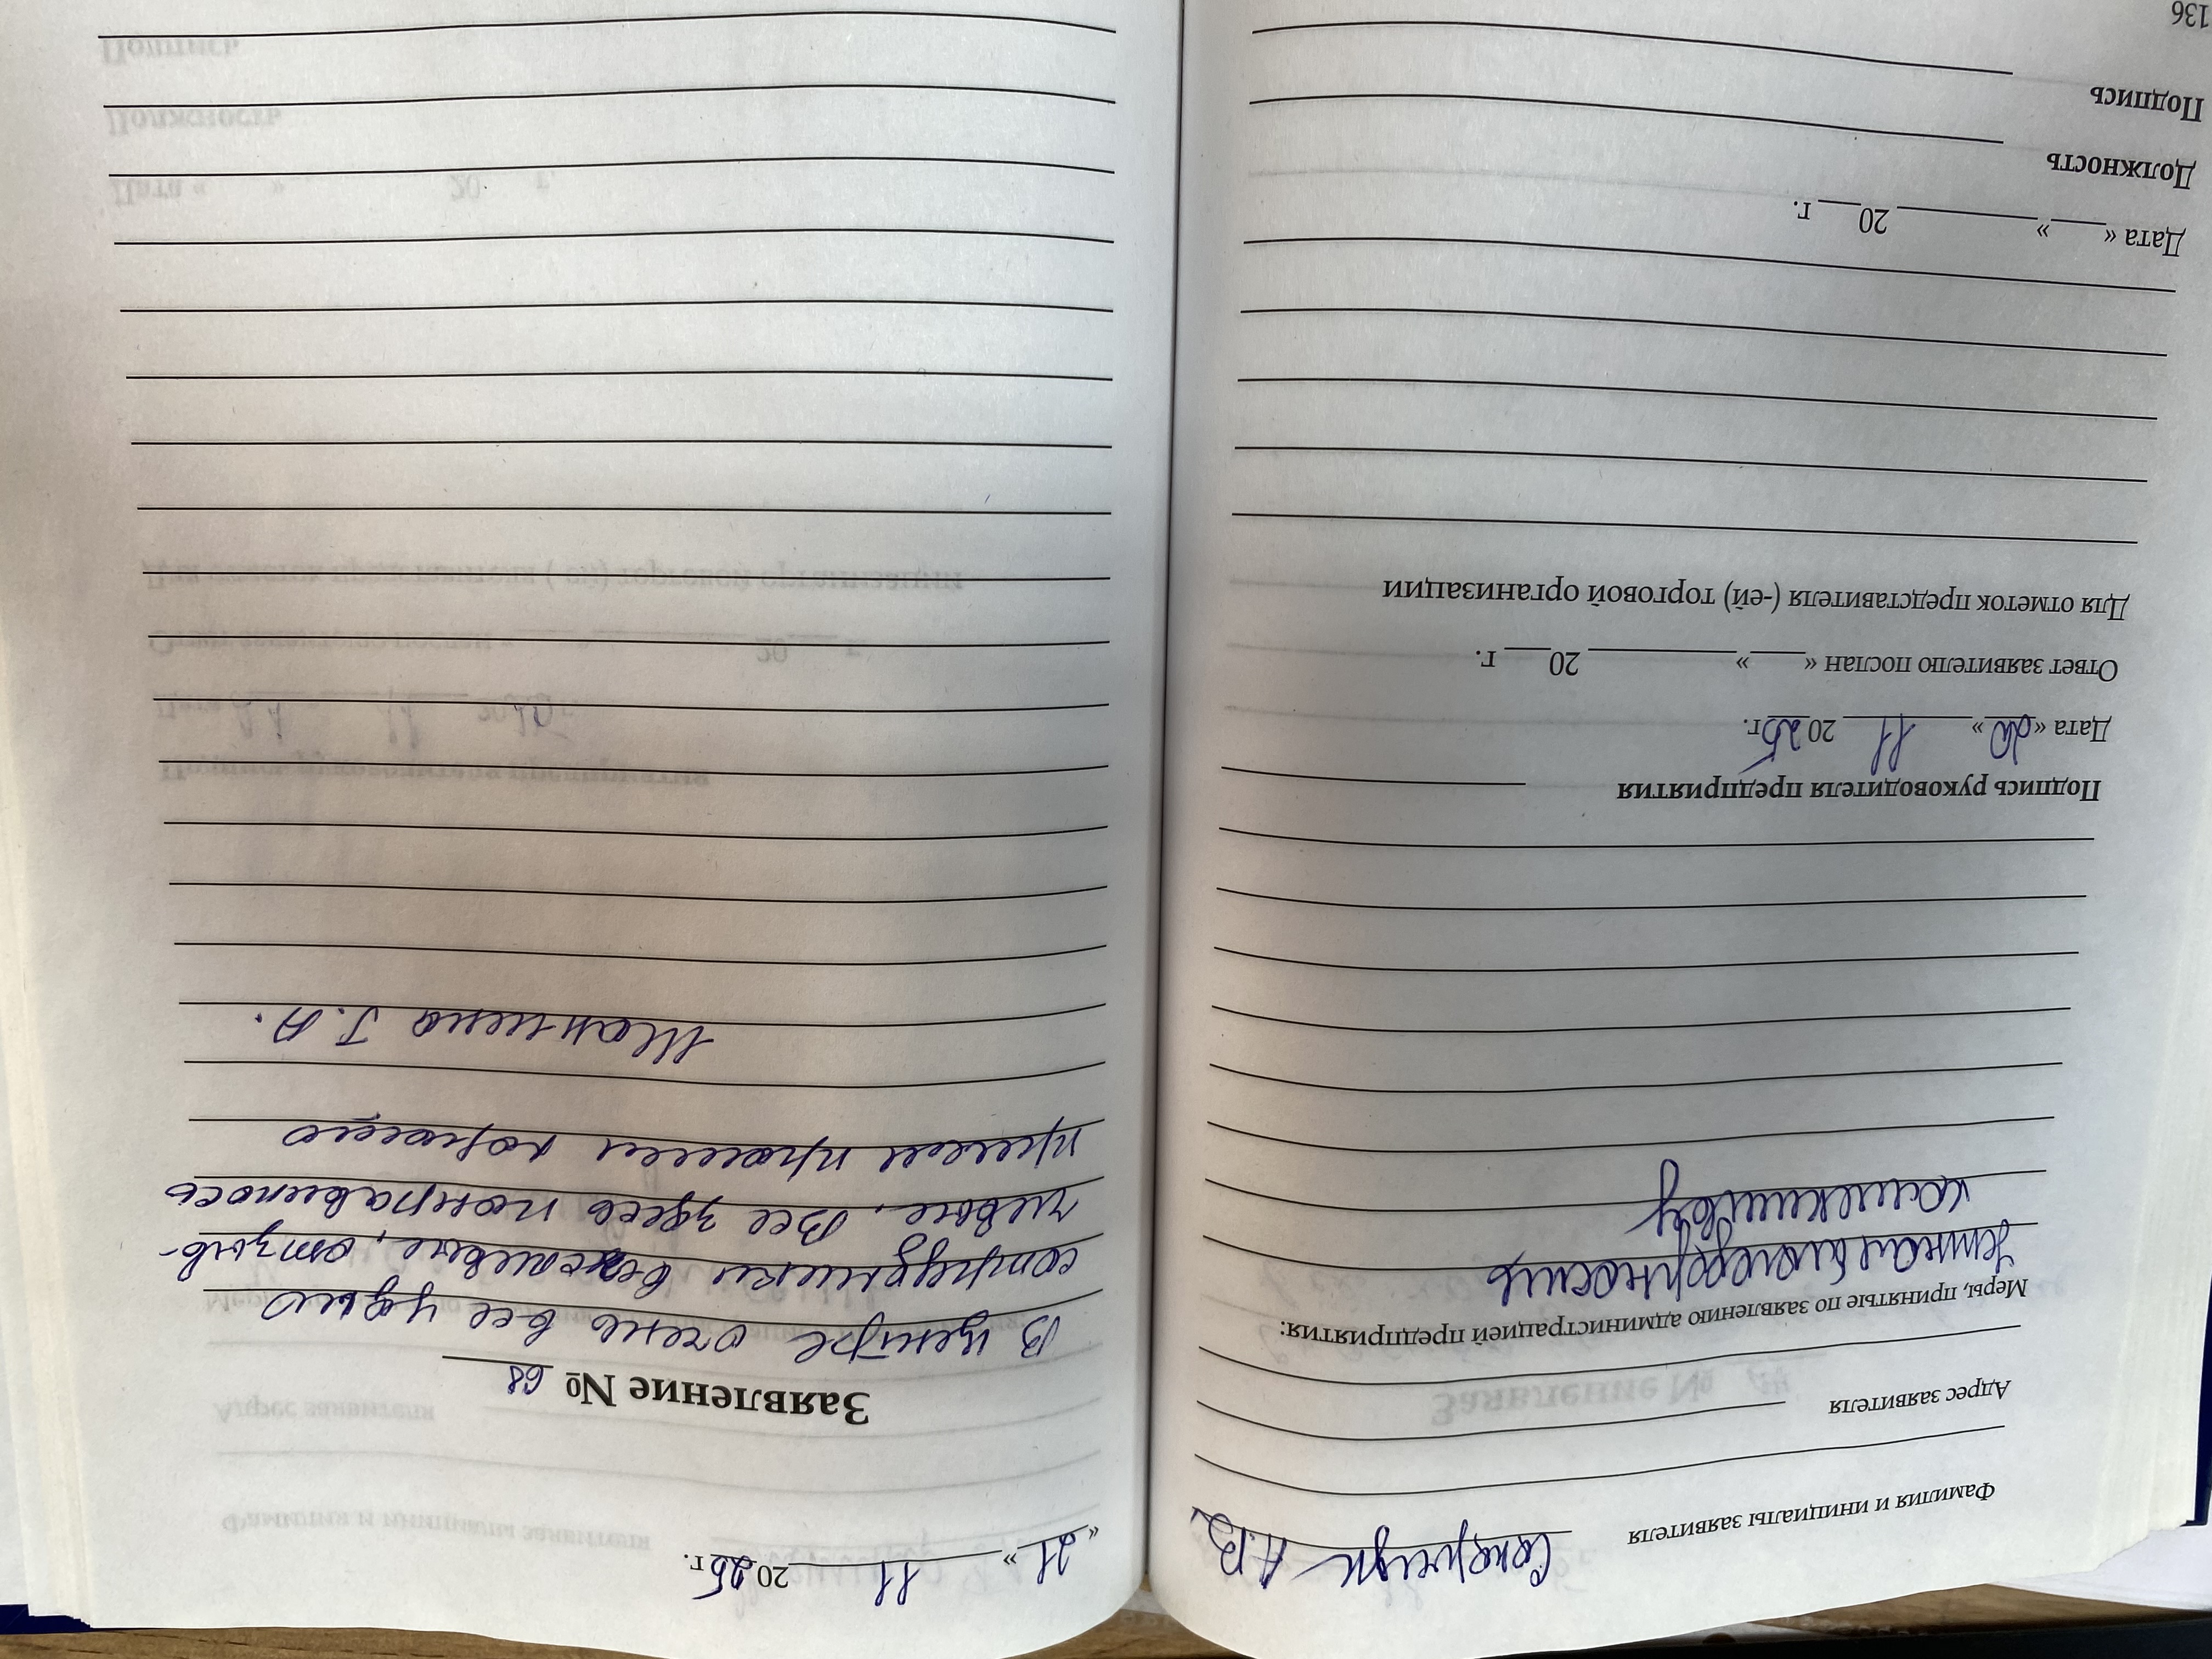 Фамилия и инициалы заявителя А.В.
Адрес заявителя
Меры, принятые по заявлению администрацией предприятия:
Устная благодарность
коллективу
Подпись руководителя предприятия
Дата «20» 11 2025г.
Ответ заявителю послан «___» ________ 20___ г.
Для отметок представителя (-ей) торговой организации
Дата «___» ________ 20___ г.
Должность
Подпись
136
«21» 11 2025г.
Заявление № 68
В центре очень все чудно
сотрудники вежливые, отзыв-
чивые. Все здесь понравилось
прием прошел хорошо